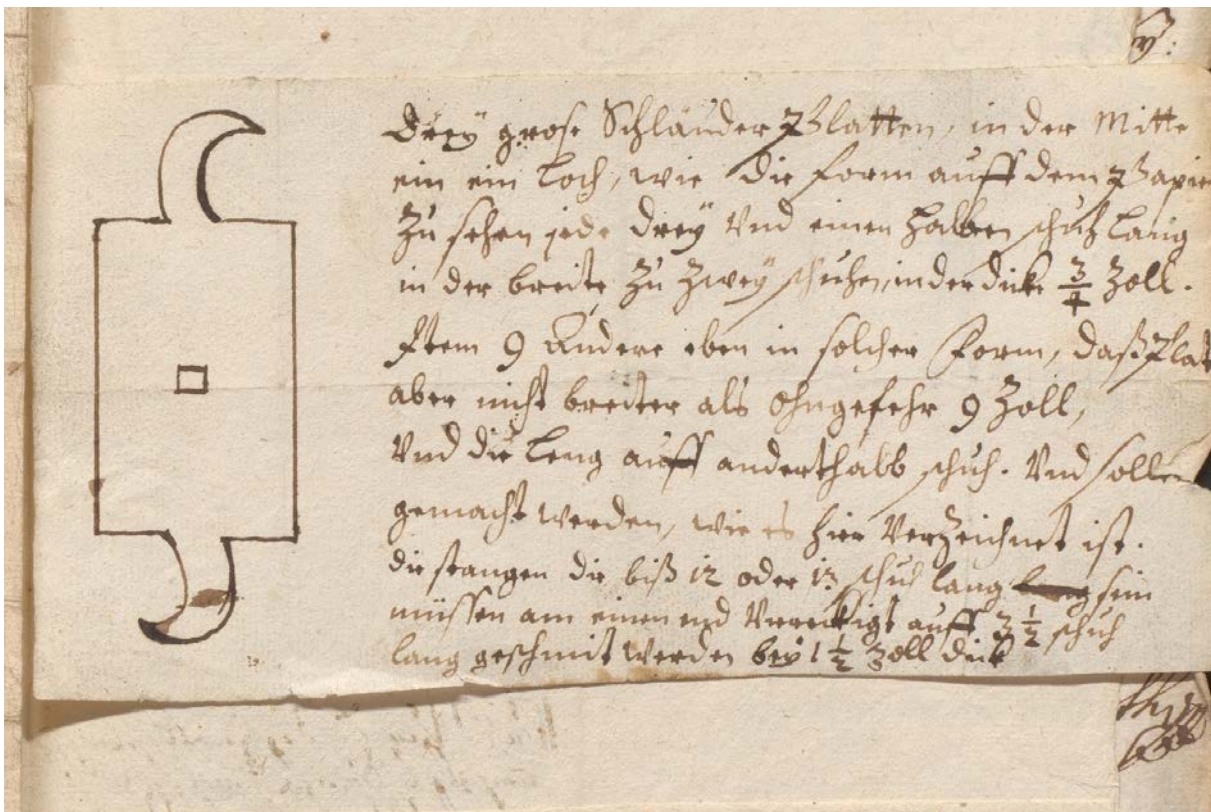 Dreÿ grose Schläuder Blatten, in der Mitte
ein ein Loch, wie die form auff dem Papier
Zu sehen jede dreÿ Vnd einen halben schuh lang
in der breite Zu Zweÿ schuhen, in der dicke 3/4 Zoll.
Item 9 Andere eben in solcher Form, daß Plat
aber nicht breiter als Ohngefehr 9 Zoll,
Vnd die Leng auff anderthalb schuh. Vnd sollen
gemacht werden, wie es hier Verzeichnet ist.
die stangen die biß 12 oder 13 schuh lang sein
müssen am einen end Viereckigt auff 3 1/2 schuh
lang geschmit werden beÿ 1 1/2 Zoll dick